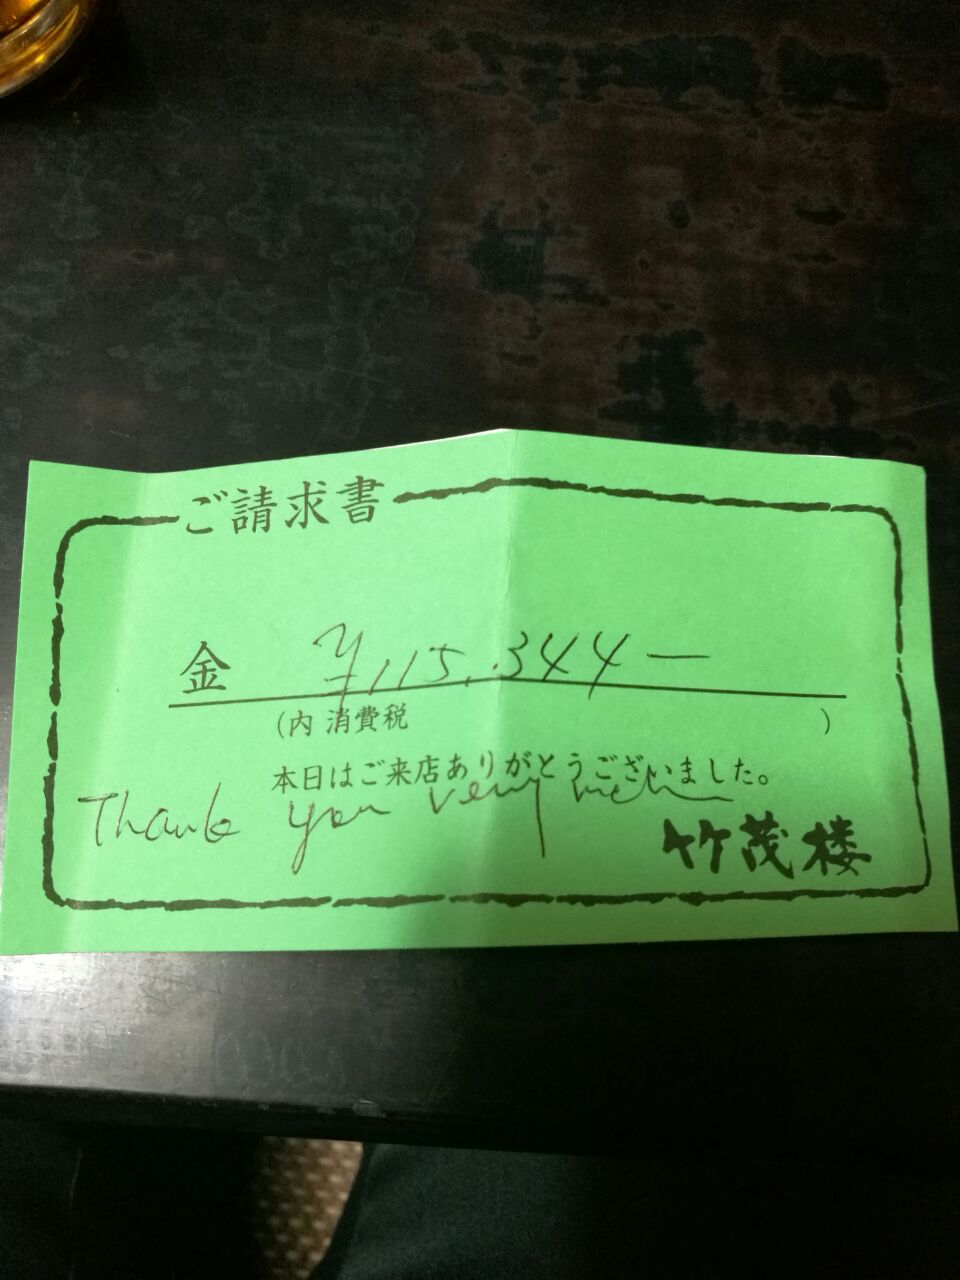 ご請求書
金 ¥115,344—
(内 消費税 )
本日はご来店ありがとうございました。
Thank you very much
竹茂楼